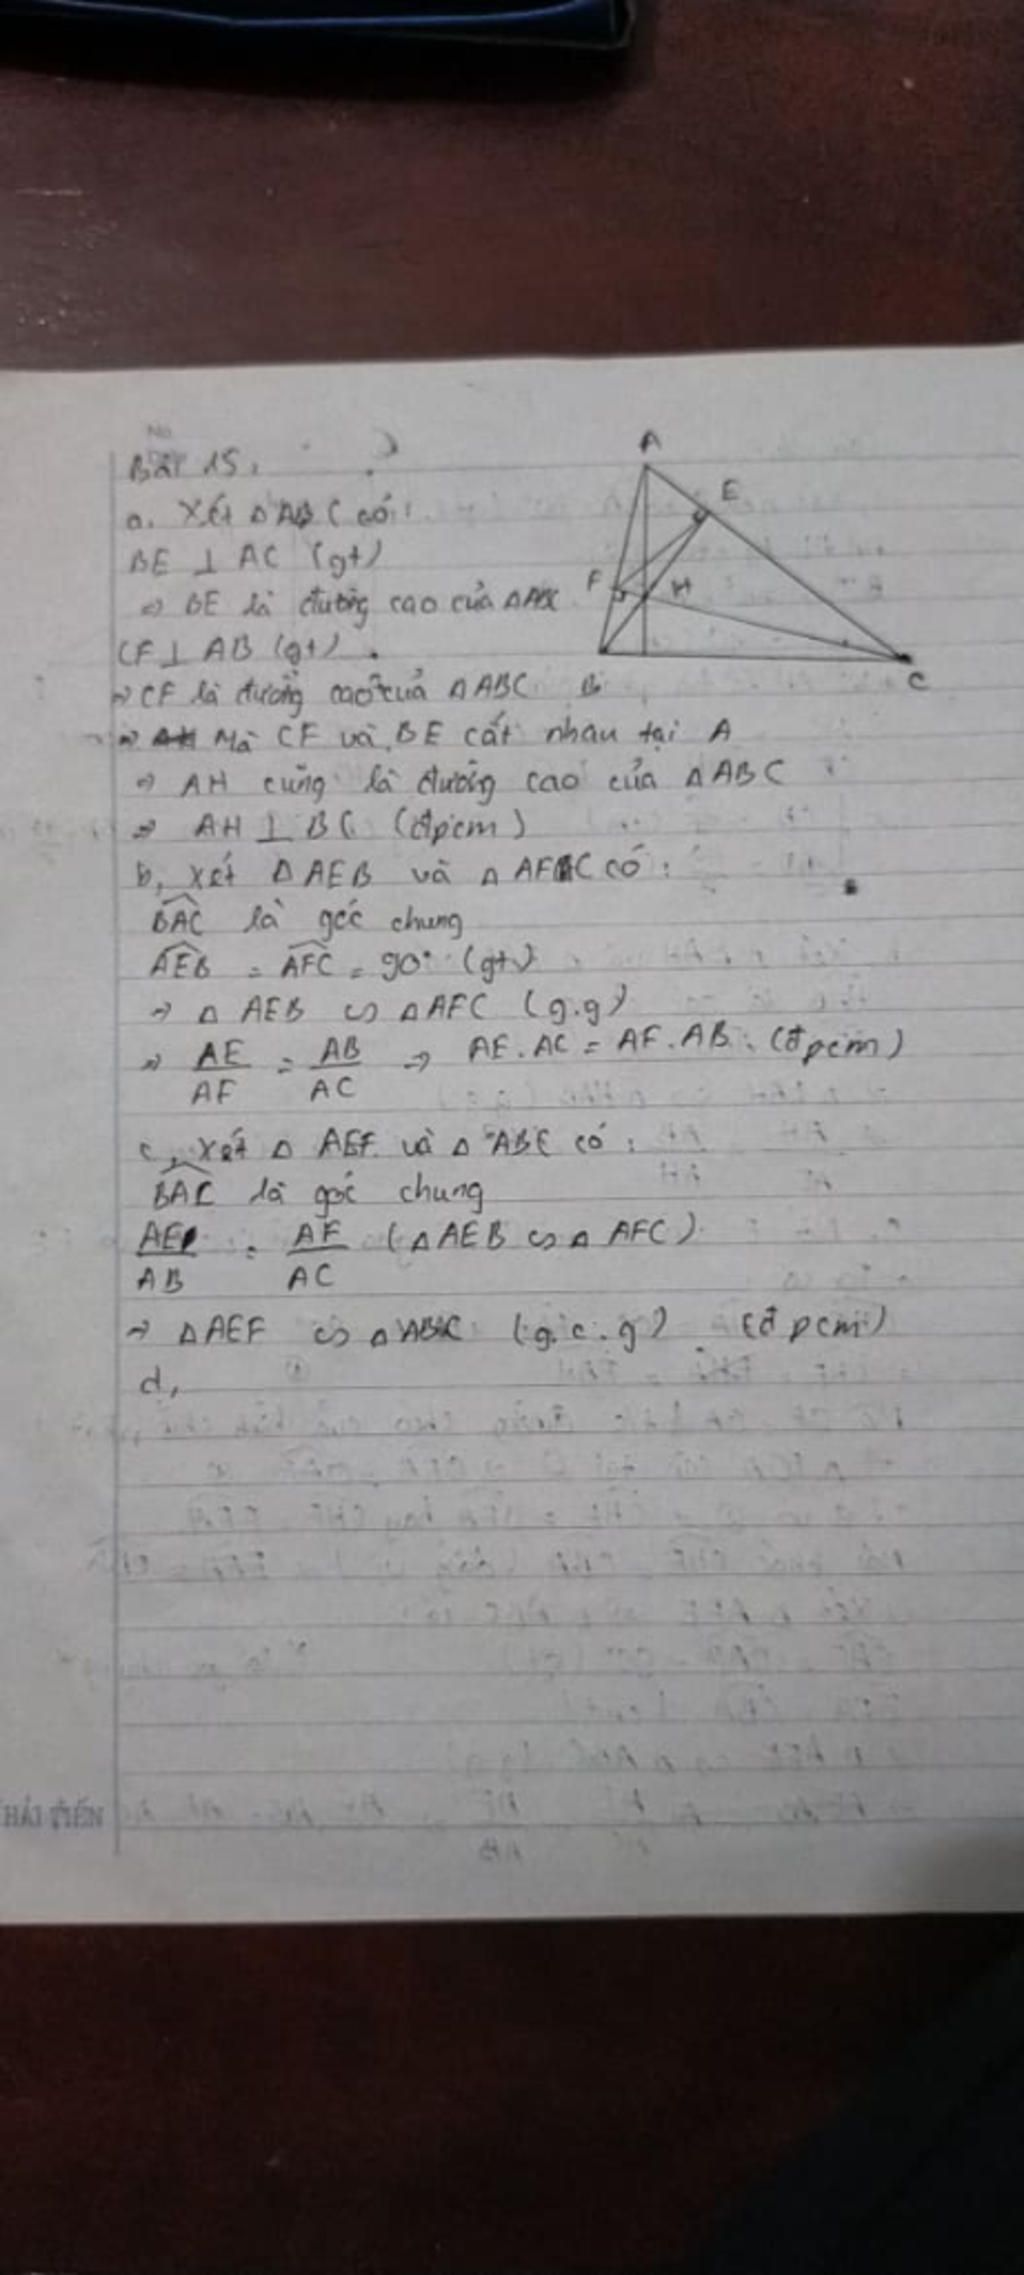 Bài 15.
a. Xét Δ ABC có:
BE ⊥ AC (gt)
⇒ BE là đường cao của ΔABC
CF ⊥ AB (gt)
⇒ CF là đường cao của Δ ABC
⇒ Mà CF và BE cắt nhau tại A
⇒ AH cũng là đường cao của Δ ABC
⇒ AH ⊥ BC (đpcm)
A
E
F
H
B
C
b, Xét Δ AEB và Δ AFC có:
BAC là góc chung
AEB = AFC = 90° (gt)
⇒ Δ AEB ∽ Δ AFC (g.g)
⇒ AE/AF = AB/AC ⇒ AE.AC = AF.AB (đpcm)
c, Xét Δ AEF và Δ ABC có:
BAC là góc chung
AE/AB = AF/AC (Δ AEB ∽ Δ AFC)
⇒ Δ AEF ∽ Δ ABC (g.c.g) (đpcm)
d,
HẢI TIẾN